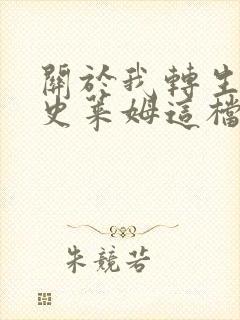 關於我轉生
史萊姆這檔
朱競若